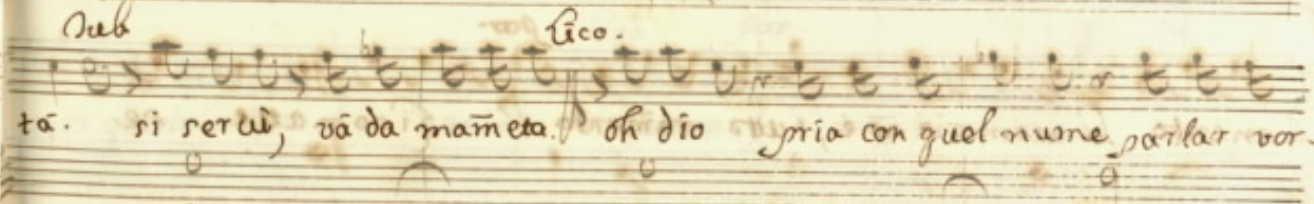 Nub Lico.
tà. si servi, và da mam̃eta. oh dio pria con quel nume parlar vor-